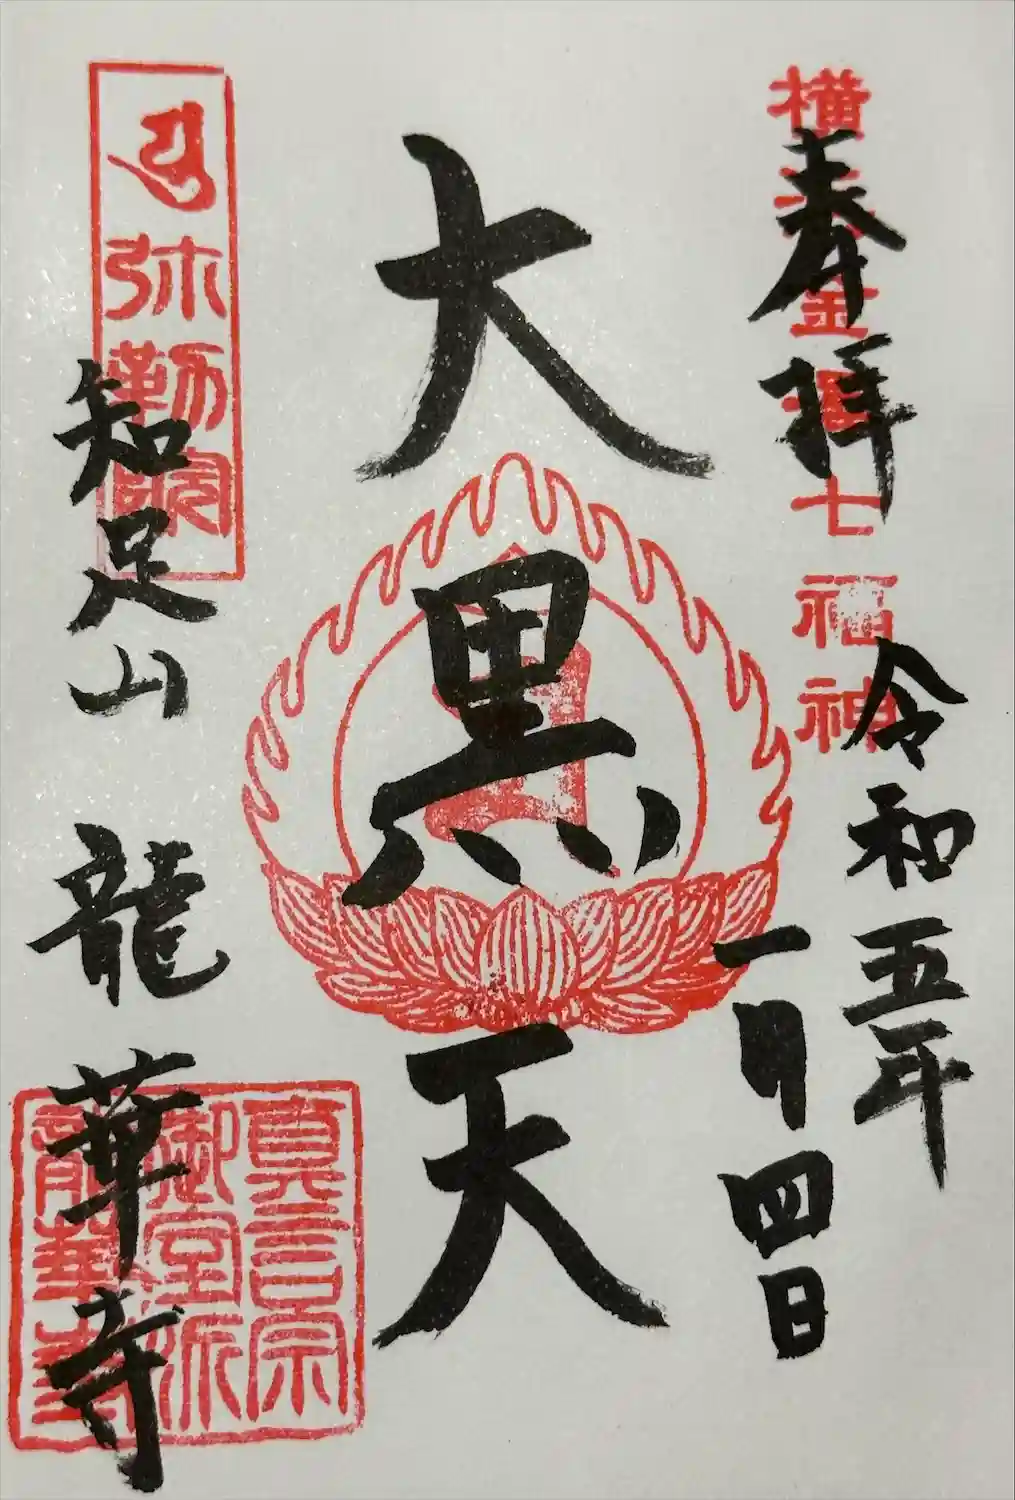 横浜金澤七福神
奉拝
令和五年
一月四日
大黒天
弥勒院
知足山
龍華寺
真言宗
御室派
龍華寺